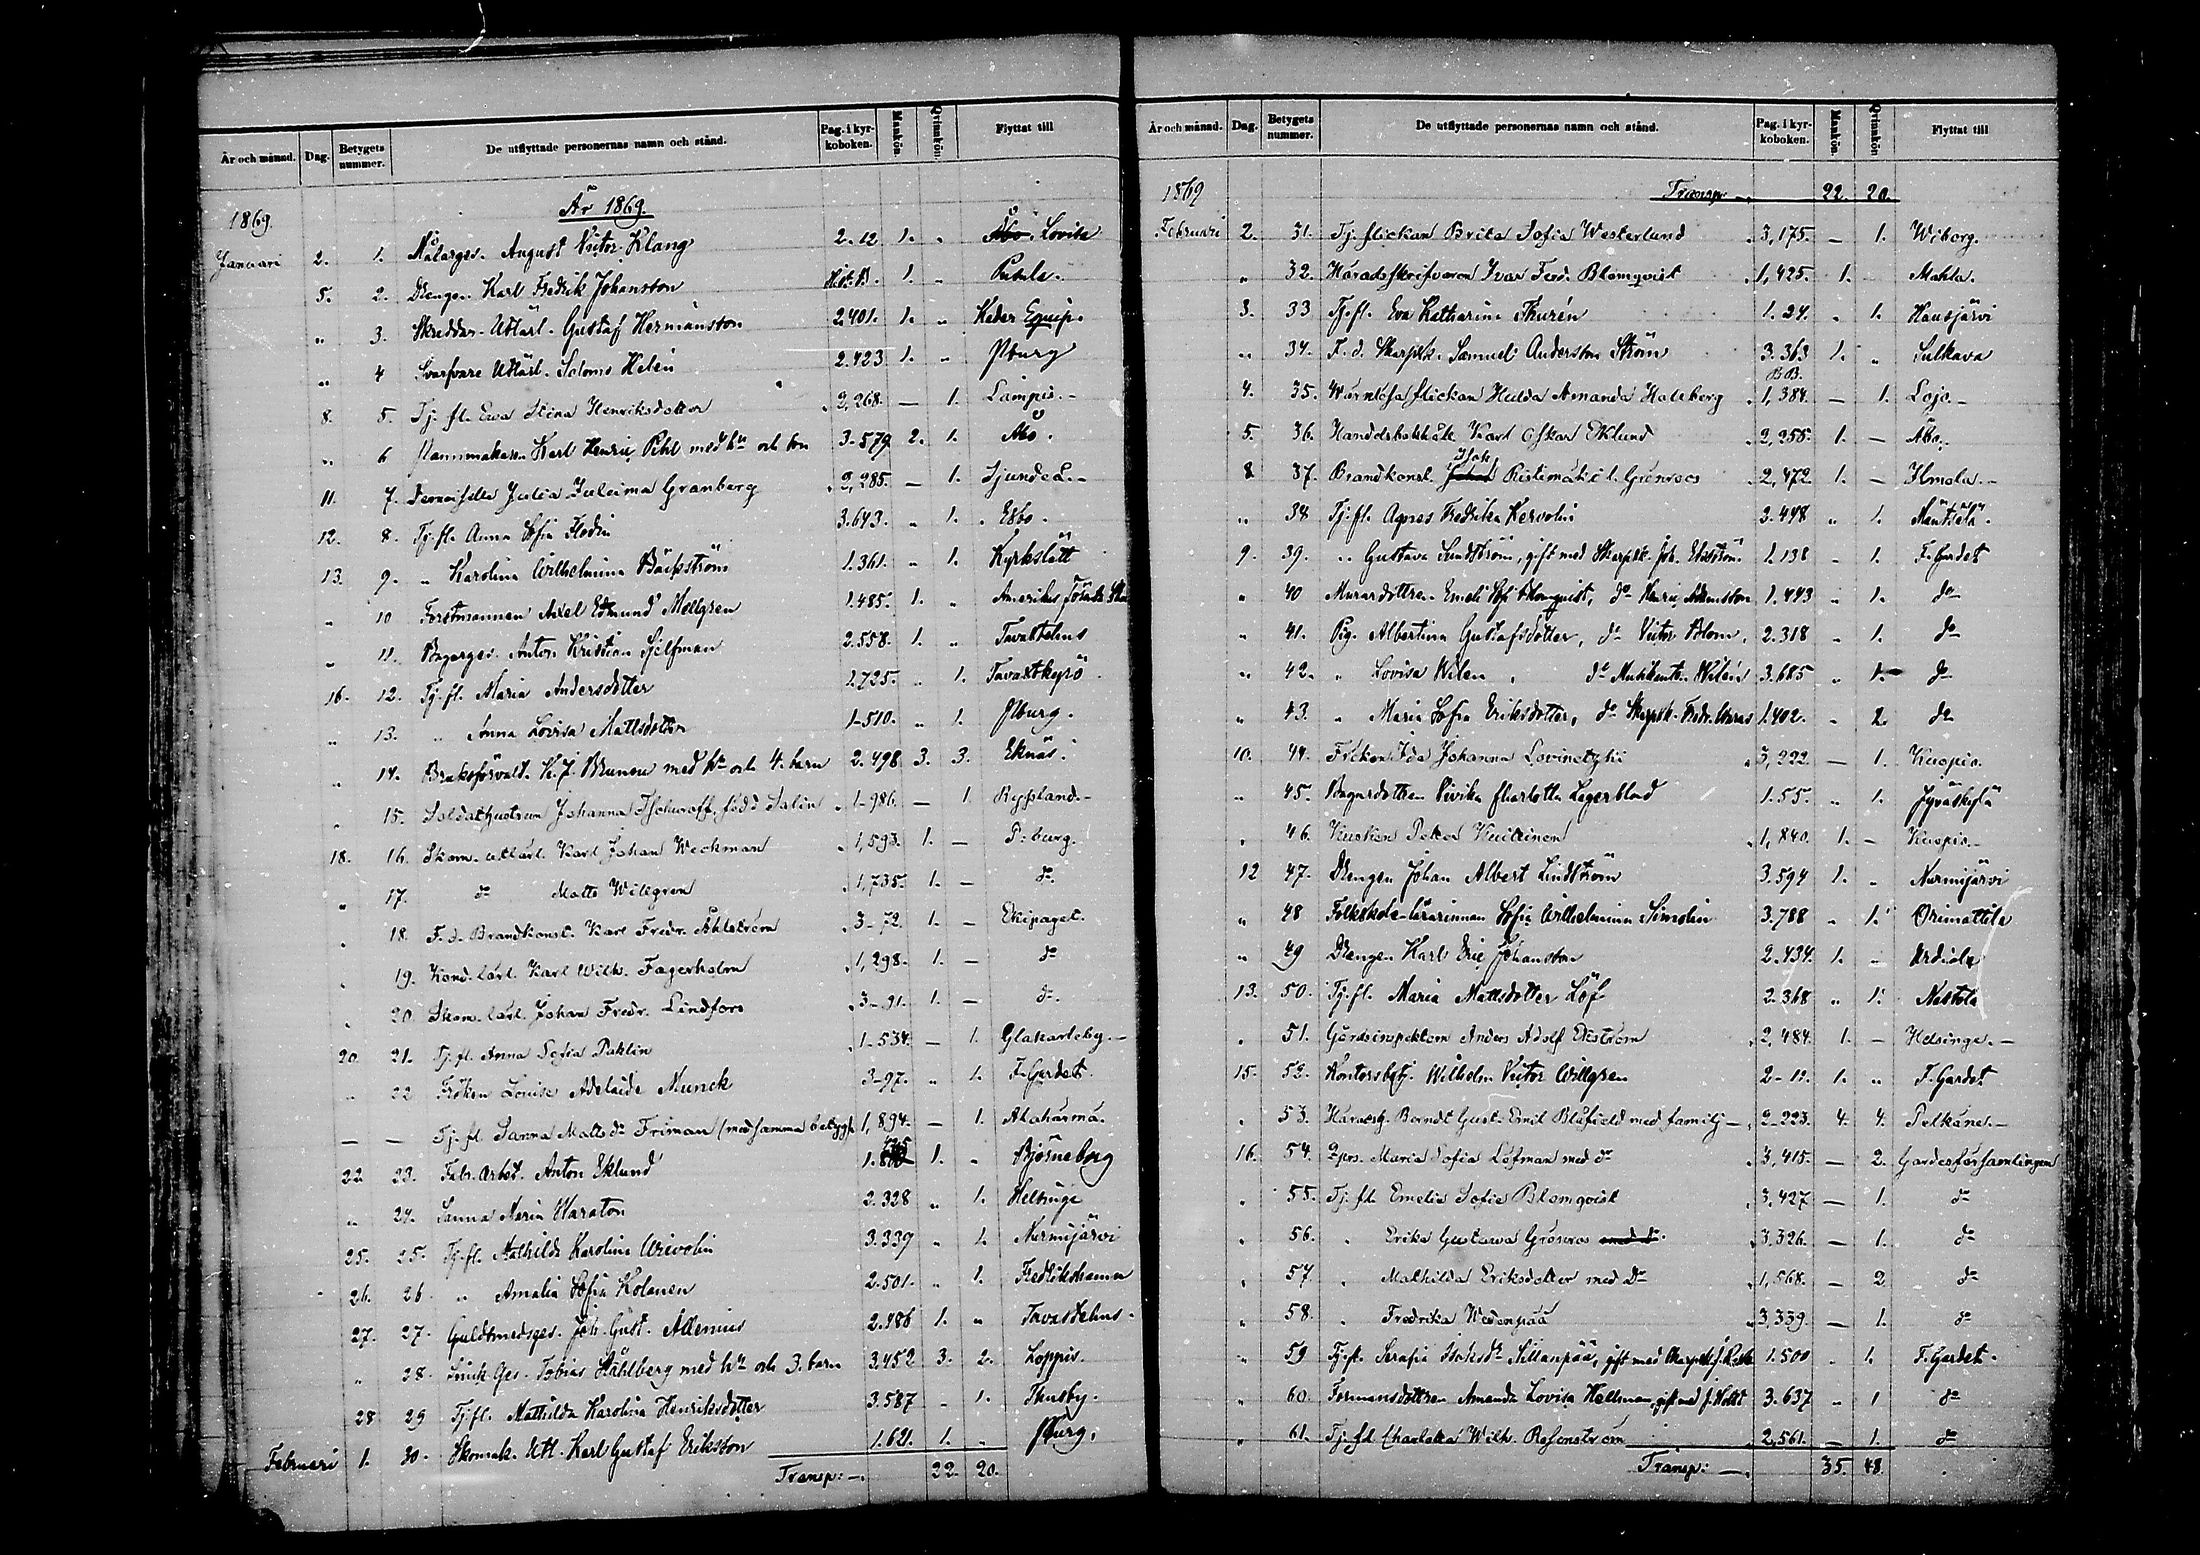 År och månad. Dag. Betygets nummer. De utflyttade personernas namn och stånd. Pag. i kyrkoboken. Mankön. Qvinnkön. Flyttat till
År 1869.
1869.
Januari 2. 1. Målarges. August Victor Klang 2.12 1. " Åbo. Lovisa
5. 2. Drengen Karl Fredrik Johansson 1. "
" 3. Skreddar-Utlärl. Gustaf Hermansson 2.401. 1. " Equip.
" 4 Svarfvare Utlärl. Salomo Helén 2.423 1. " Pburg
8. 5. Tj. fl. Ewa Stina Henriksdotter 2,268. — 1. Lampis.
" 6 Karl Henric Pihl med hu och son 3-579 2. 1. Åbo.
11. 7. Julia Juliima Granberg 2,285. — 1. Sjundeå.
12. 8. Tj. fl. Anna Sofia Flodin 3.643. " 1. Esbo.
13. 9. " Karolina Wilhelmina Bäckström 1.361. " 1. Kyrkslätt
" 10 Forstmannen Axel Edmund Mellgren 1.485. 1. " Amerikas Förenta
" 11. Bagarges. Anton Kristian Sjelfman 2.558. 1. " Tavastehus
16. 12. Tj. fl. Maria Andersdotter 1.725. " 1. Tavastkyrö
" 13. " Anna Lovisa Mattsdotter 1-510. " 1. Pburg.
" 14. Bruksförvalt. K. J. Brunou med hu och 4. barn 2.498 3. 3. Eknäs.
" 15. Soldathustrun Johanna född Salin 1-986. — 1. Ryssland.
18. 16. Skom. utlärl. Karl Johan Weckman 1,593. 1. — P:burg.
" 17. do Matts Willgren 1,735. 1. — do.
" 18. F. d. Brandkonst. Karl Fredr. Åhlström 3-72. 1. — Ekipaget.
" 19. Kond. lärl. Karl Wilh. Fagerholm 1,298. 1. — do
" 20. Skom. lärl. Johan Fredr. Lindfors 3-91. 1. — do.
20. 21. Tj. fl. Anna Sofia Paklin 1-534. — 1. Gla karleby.
" 22 Fröken Louise Adelaide Munck 3-97. " 1. F. Gardet.
— — Tj. fl. Sanna Matts dr Friman (med samma betyg) 1,894. — 1. Alahärmä.
22 23. Fabr. arbet. Anton Eklund 1. " Björneborg
" 24. Sanna Maria Waraton 2.328 " 1. Helsinge
25. 25. Tj. fl. Mathilda Karolina 3.339 " 1. Nurmijärvi
26. 26 " Amalia Sofia Kolanen 2.501. " 1. Fredrikshamn
27. 27. Guldsmedsges. Joh. Gust. Allenius 2.486 1. " Tavastehus.
" 28. Ges. Tobias Ståhlberg med hu och 3. barn 3.452 3. 2. Loppis.
28 29 Tj. fl. Mathilda Karolina Henriksdotter 3.587 " 1. Thusby.
Februari 1. 30. Skomak. Utl. Karl Gustaf Eriksson 1.621. 1. " Pburg.
Transp: — 22. 20.
År och månad. Dag. Betygets nummer. De utflyttade personernas namn och stånd. Pag. i kyrkoboken. Mankön. Qvinnkön Flyttat till
1869 Transp: 22. 20.
Februari 2. 31. Tj. flickan Brita Sofia Westerlund 3,175. — 1. Wiborg.
" 32. Häradsskrifvaren Ivar Ferd. Blomqvist 1,425. 1. —
3. 33 Tj. fl. Eva Katharina Thurén 1.24. " 1. Hausjärvi
" 34. F. d. Skarpsk. Samuel Andersson Ström 3.363 1. " Sulkava
4. 35. Wärnlösa flickan Hulda Amanda Holsberg B.B. 1,384. — 1. Lojo.
5. 36. Handelsbokhåll. Karl Oskar Eklund 2,255. 1. — Åbo.
8 37. Brandkonst. Isak Ristimäki l. Grönroos 2,472. 1. — Ilmola.
" 38 Tj. fl. Agnes Fredrika Kervolin 2.448 " 1. Mäntsälä.
9. 39. " Gustava Sundström, gift med Skarpsk. Joh. Ekström 1.138 - 1. F. Gardet
" 40 Murardottren Emeli Sofi Blomquist, do Henric Adamsson 1.443 " 1. do
" 41. Pig. Albertina Gustafsdotter, do Victor Blom, 2.318 " 1. do
" 42. " Lovisa Wilen, do Musikante Wilén 3.685 " 1. do
" 43. " Maria Sofia Eriksdotter, do Skarpsk. Fredr. 1.402. - 2. do
10. 44. Fröken Ida Johanna 3,222 — 1. Kuopio.
" 45. Bagardottren Vivika Charlotta Lagerblad 1.55. " 1. Jyväskylä
" 46. Kusken Petter 1,840. 1. — Kuopio.
12 47. Drengen Johan Albert Lindström 3.594 1. " Nurmijärvi
" 48 Folkskole-lärarinnan Sofia Wilhelmina Simolin 3.788 " 1. Orimattila
" 49 Drengen Karl Eric Johansson 2.434. 1. " Urdiala
13. 50. Tj. fl. Maria Mattsdotter Löf 2.368 " 1. Nastola
" 51. Gårdsinspektorn Anders Adolf Ekström 2,484. 1. — Helsinge.
15. 52. Kontorsbetj. Wilhelm Victor Willgren 2-11. 1. " F. Gardet
" 53. Häradsh. Berndt Gust. Emil Blåfield med familj — 2-223. 4. 4. Pelkäne.
16. 54. Maria Sofia Löfman med dr 3,415. — 2. Gardesförsamlingen
" 55. Tj. fl. Emelie Sofia Blomqvist 3,427 — 1. do
" 56. " Erika Gustava Grönroos med dr 3,326. — 1. do
" 57. " Mathilda Eriksdotter med Dr 1,568. — 2 do
" 58. " Fredrika Wedenpää 3,339. — 1. do
" 59 Tj. fl. Serafia Isaks dr Sillanpää, gift med Skarpsk. 1.500 " 1. F. Gardet.
" 60. Formansdottren Amanda Lovisa Hellman, gift med 3.637 " 1 do
" 61. Tj. fl. Charlotta Wilh. Rosenström 2,561. — 1. do
Transp: — 35. 48.